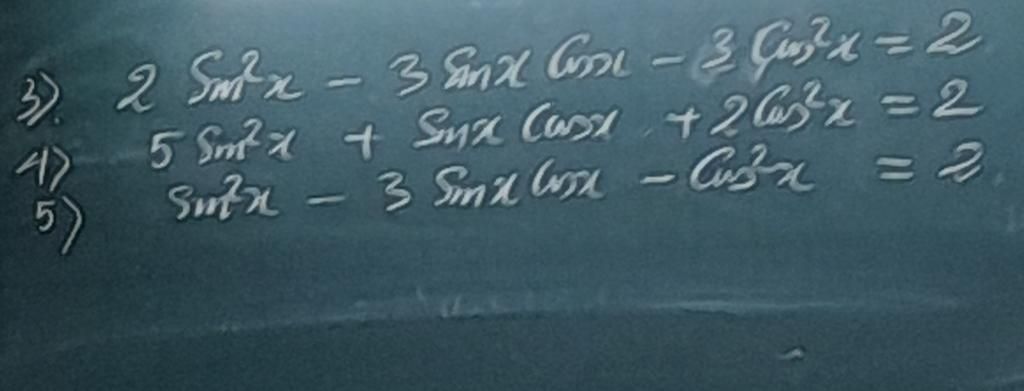 3). 2 Sin²x - 3 Sinx Cosx - 3 Cos²x = 2
4) 5 Sin²x + Sinx Cosx + 2 Cos²x = 2
5) Sin²x - 3 Sinx Cosx - Cos²x = 2